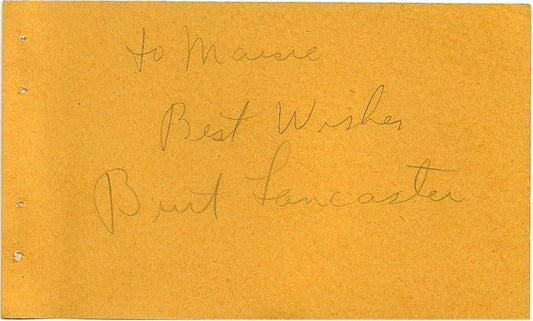 to Maisie
Best Wishes
Burt Lancaster